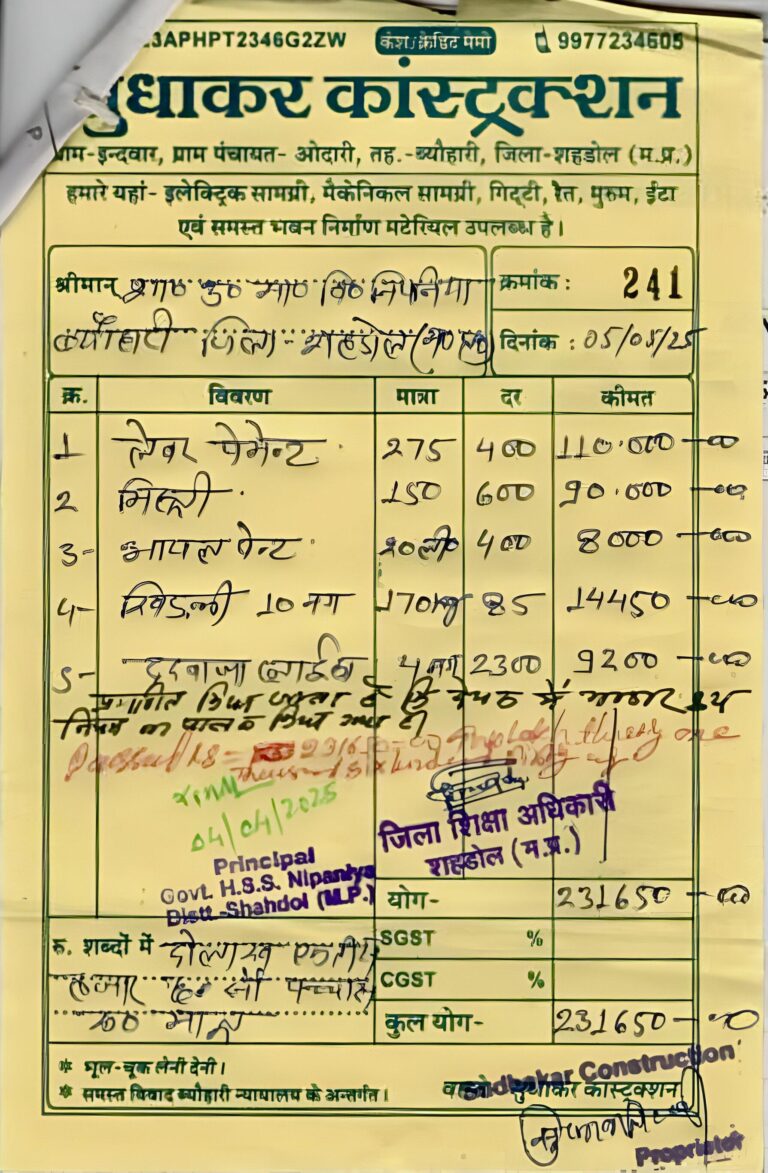 23APHPT2346G2ZW कैश/क्रेडिट मेमो 9977234605
सुधाकर कांस्ट्रक्शन
ग्राम-इन्दवार, ग्राम पंचायत- ओदारी, तह.-ब्यौहारी, जिला-शहडोल (म.प्र.)
हमारे यहां- इलेक्ट्रिक सामग्री, मैकेनिकल सामग्री, गिट्टी, रेत, मुरूम, ईटा
एवं समस्त भवन निर्माण मटेरियल उपलब्ध है।
श्रीमान् शा0 उ0 मा0 वि0 निपनिया
ब्यौहारी जिला- शहडोल (म0प्र0)
क्रमांक : 241
दिनांक : 05/05/25
क्र. विवरण मात्रा दर कीमत
1 लेवर पेमेन्ट 275 400 110.000-00
2 मिस्त्री 150 600 90.000-00
3- आयल पेन्ट 20ली0 400 8000-00
4- खिड़की 10 नग 170kg 85 14450-00
5- दरवाजा 4 नग 2300 9200-00
प्रमाणित किया जाता है कि में भण्डार क्रय
नियम का पालन किया गया है।
Passed Rs = 231650=00
thousand six hundred fifty
04/04/2025
Principal
Govt. H.S.S. Nipaniya
Distt.-Shahdol (M.P.)
जिला शिक्षा अधिकारी
शहडोल (म.प्र.)
योग- 231650-00
रू. शब्दों में दो लाख एकतीस
हजार छः सौ पच्चास
रू0 मात्र
SGST %
CGST %
कुल योग- 231650-00
* भूल-चूक लेनी देनी।
* समस्त विवाद ब्यौहारी न्यायालय के अन्तर्गत।
वास्ते सुधाकर कांस्ट्रक्शन
Sudhakar Construction
Proprietor